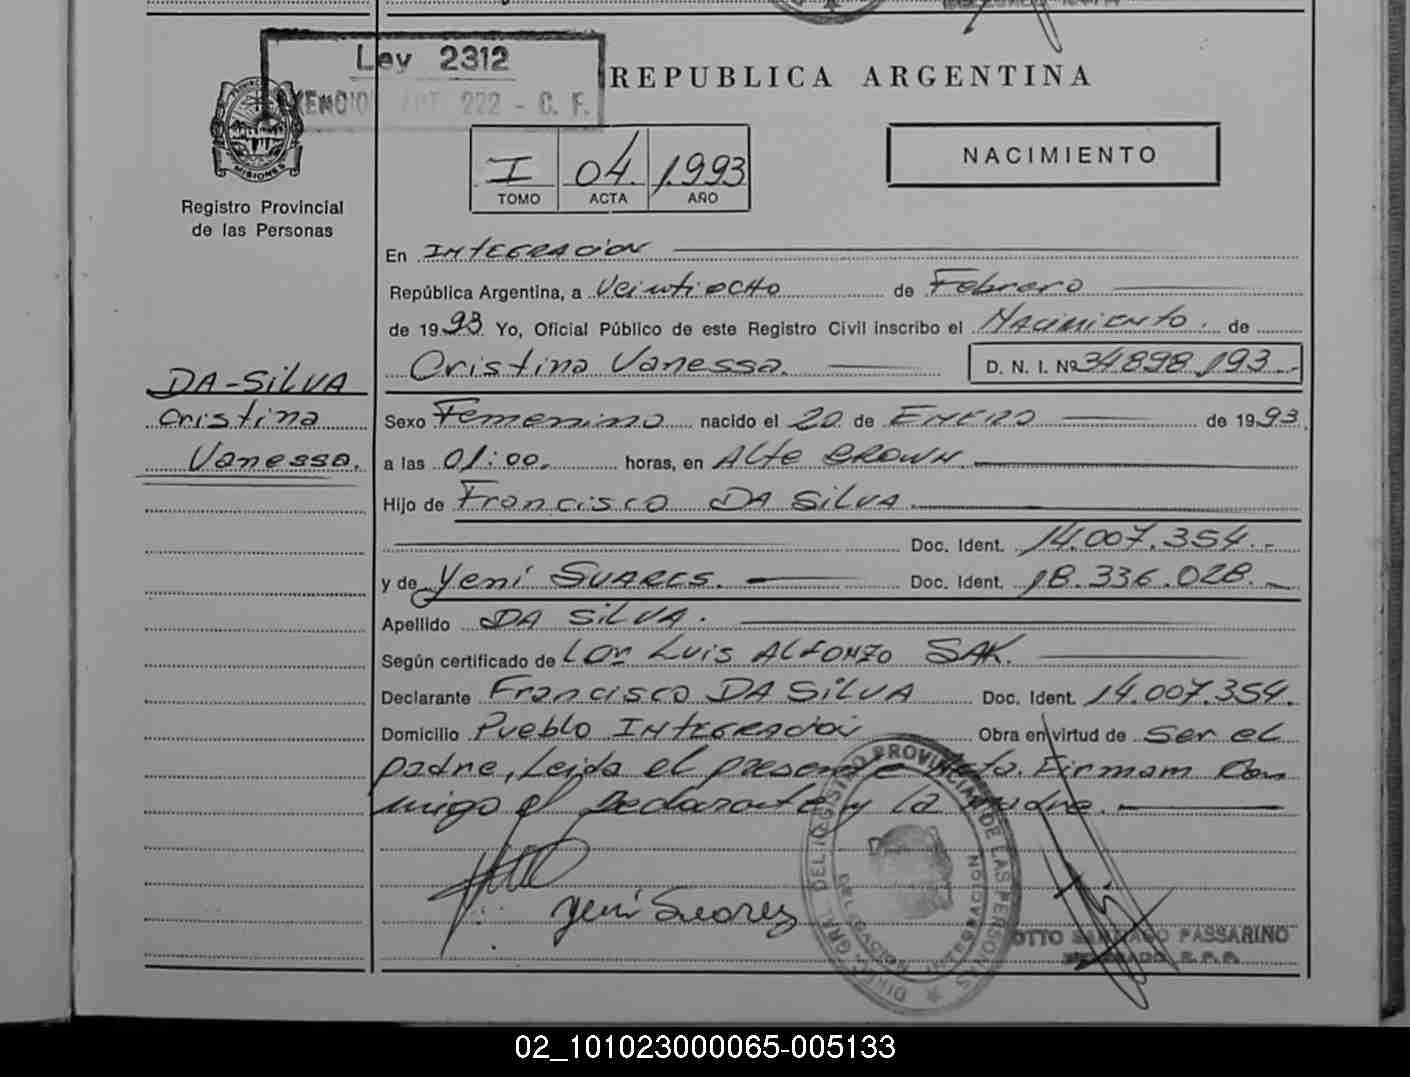 Ley 2312
EXENCION ART 222 - C. F.
REPUBLICA ARGENTINA
MISIONES
Registro Provincial
de las Personas
I 04. 1.993
TOMO ACTA AÑO
NACIMIENTO
En INTEGRACION
República Argentina, a Veintiocho de Febrero
de 1993. Yo, Oficial Público de este Registro Civil inscribo el Nacimiento. de
Cristina Vanessa. D. N. I. Nº 34898.193.-
DA-SILVA
Cristina
Vanessa.
Sexo Femenino nacido el 20 de ENERO de 1993.
a las 01:00. horas, en Alte BROWN.
Hijo de Francisco DA SILVA.
Doc. Ident. 14.007.354.-
y de Yeni SUARES. Doc. Ident. 18.336.028.-
Apellido DA SILVA.
Según certificado de Luis ALFONZO SAK.
Declarante Francisco DA SILVA Doc. Ident. 14.007.354.
Domicilio Pueblo INTEGRACION Obra en virtud de Ser el
padre, Leida el presente Acta. Firmam Con
migo el Declarante y la madre.
Yeni Suarez
DIREC. GRAL. DEL REGISTRO PROVINCIAL DE LAS PERSONAS
DELEGACION INTEGRACION
OTTO SANTIAGO PASSARINO
DELEGADO R.P.P.
02_101023000065-005133